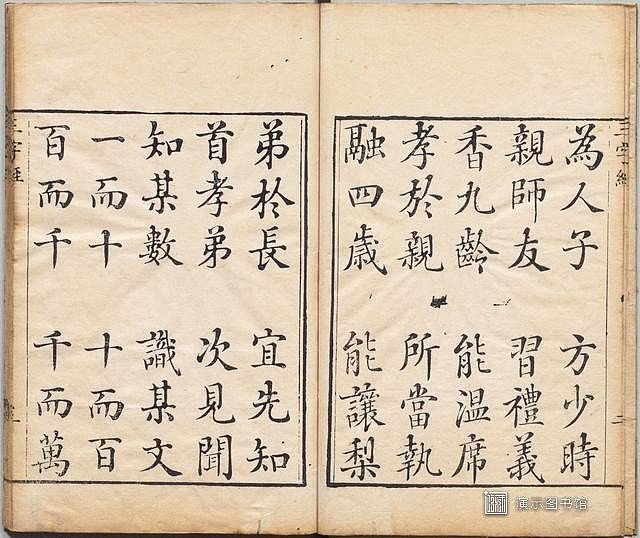 為人子 方少時
親師友 習禮義
香九齡 能温席
孝於親 所當執
融四歳 能讓梨
弟於長 宜先知
首孝弟 次見聞
知某數 識某文
一而十 十而百
百而千 千而萬
三字經
三字經
演示图书馆